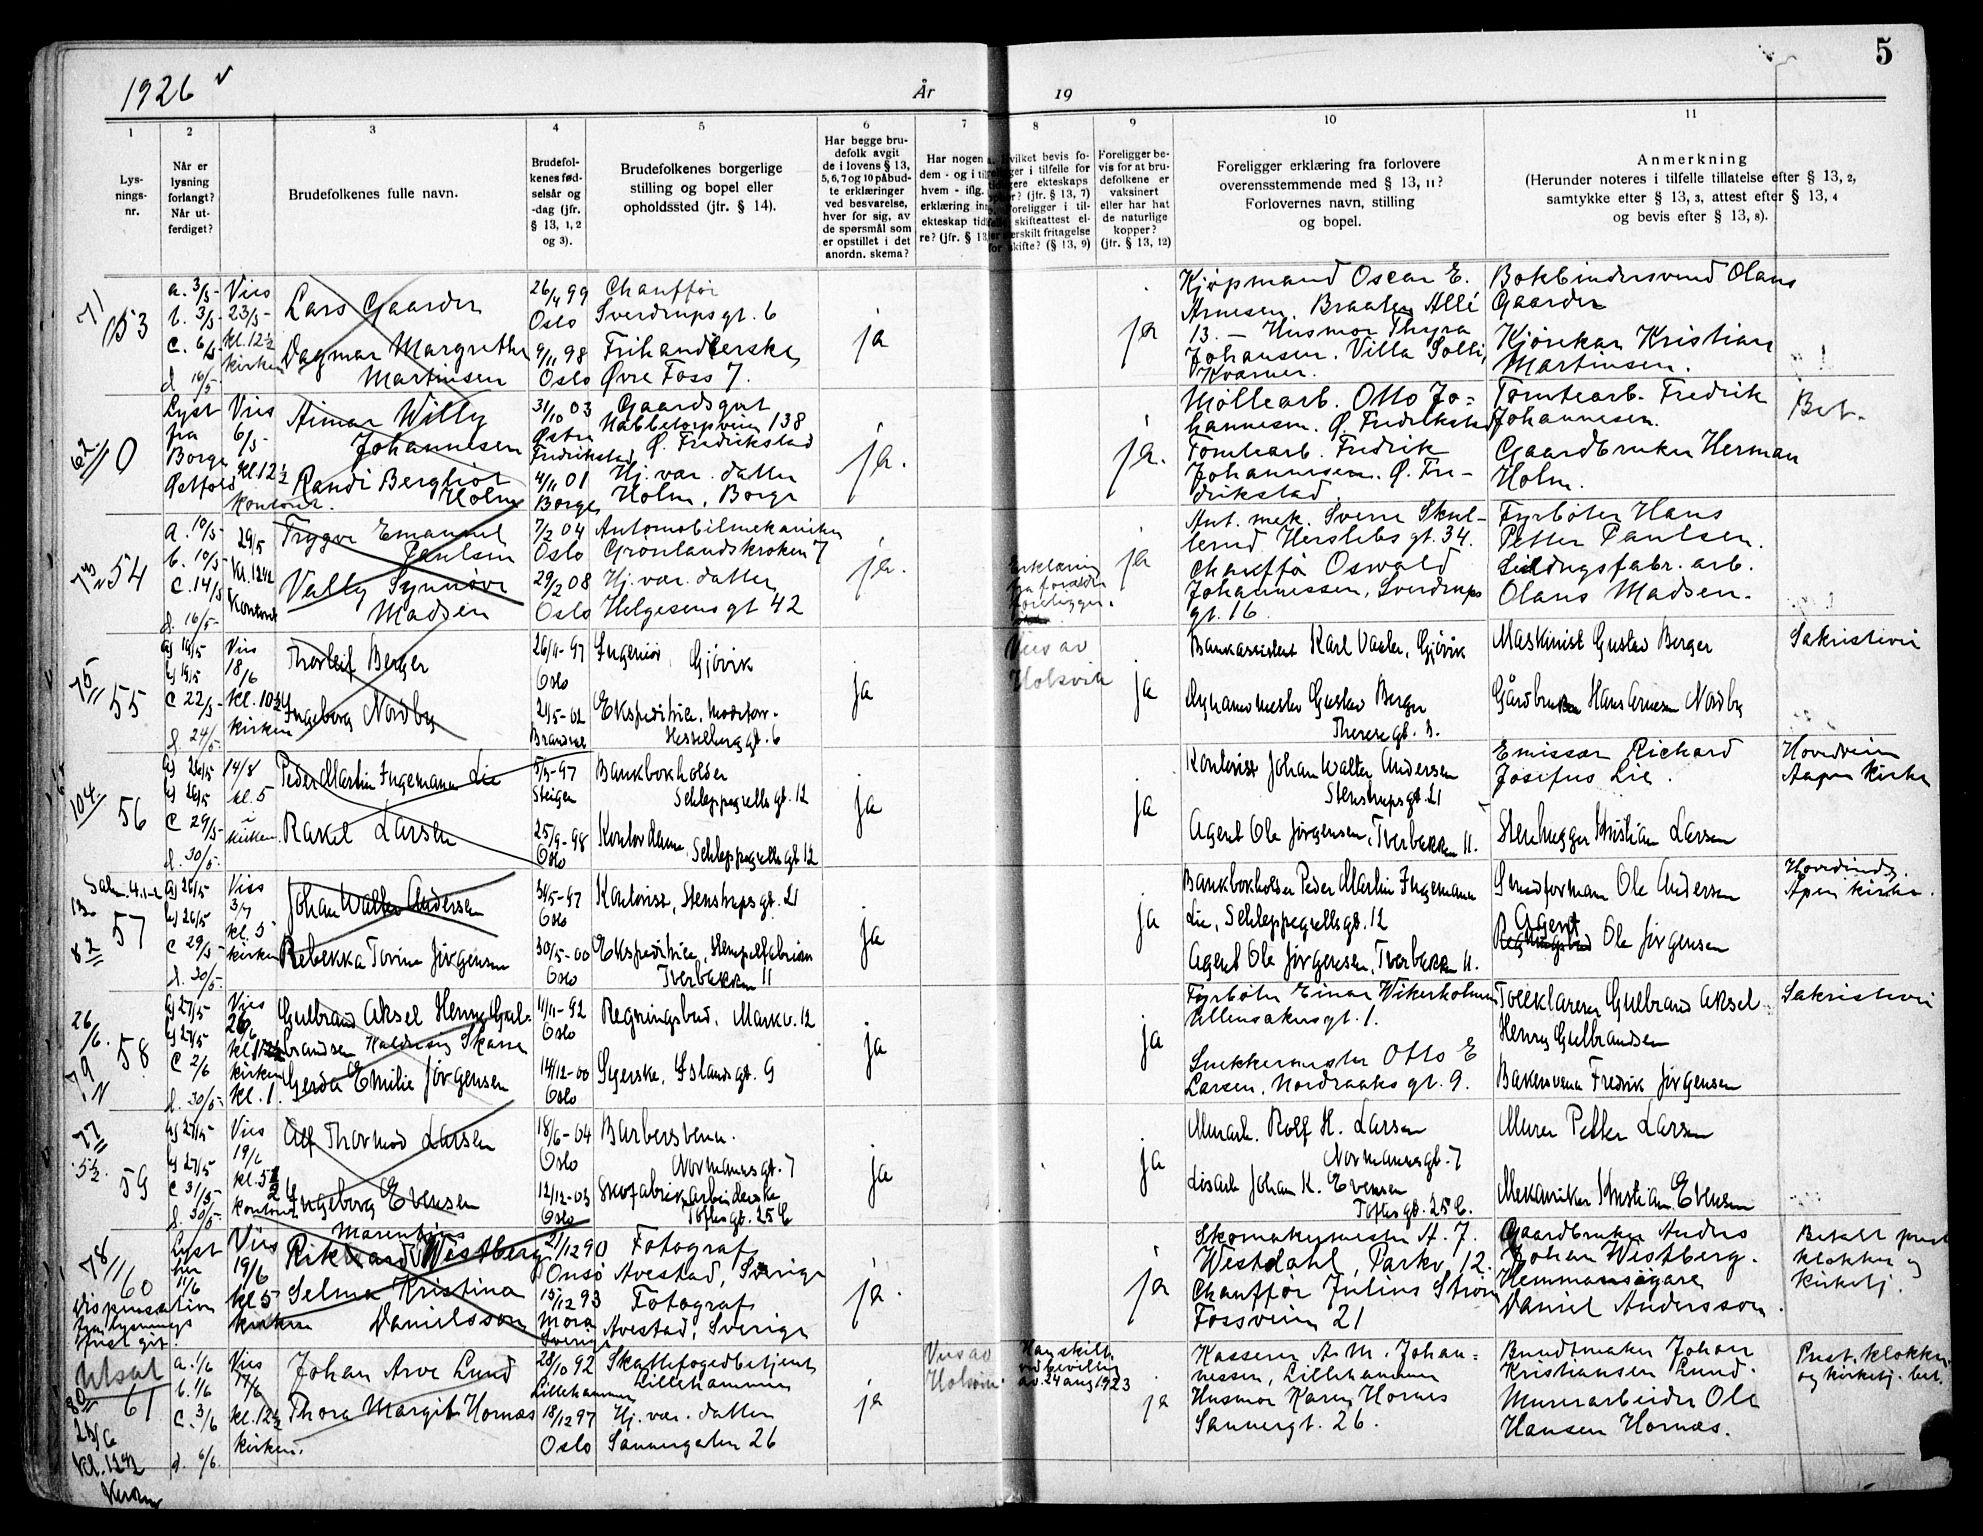 5
1926
År 19
1
2
3
4
5
6
7
8
9
10
11
Lys-
nings-
nr.
Når er
lysning
forlangt?
Når ut-
ferdiget?
Brudefolkenes fulle navn.
Brudefol-
kenes fød-
selsår og
-dag (jfr.
§ 13, 1, 2
og 3).
Brudefolkenes borgerlige
stilling og bopel eller
opholdssted (jfr. § 14).
Har begge bru-
defolk avgit
de i lovens § 13,
5, 6, 7 og 10 påbud-
te erklæringer
ved besvarelse,
hver for sig, av
de spørsmål som
er opstillet i det
anordn. skema?
Har nogen a
dem - og i ti
hvem - iflg.
erklæring in
ekteskap tid
re? (jfr. § 13
Hvilket bevis fo-
religger i tilfelle for
tidligere ekteskaps
ophør? (jfr. § 13, 7)
Foreligger i til-
felle skifteattest el-
ler særskilt fritagelse
for skifte? (§ 13, 9)
Foreligger be-
vis for at bru-
defolkene er
vaksinert
eller har hat
de naturlige
kopper?
(jfr. § 13, 12)
Foreligger erklæring fra forlovere
overensstemmende med § 13, 11?
Forlovernes navn, stilling
og bopel.
Anmerkning
(Herunder noteres i tilfelle tillatelse efter § 13, 2,
samtykke efter § 13, 3, attest efter § 13, 4
og bevis efter § 13, 8).
71
53
a. 3/5 -
b. 3/5 -
c. 6/5 -
d. 16/5 -
Vies
23/5 -
kl. 12½
kirken
Lars Gaarder
Dagmar Margrethe
Martinsen
26/4 99
Oslo
9/11 98
Oslo
Chauffør
Sverdrupsgt. 6
Frihandlerske
Øvre Foss 7.
ja
ja
Kjøpmand Oscar E.
Arnesen, Braaten Allé
13. – Husmor Thyra
Johansen. Villa Solli,
Kværner.
Bokbindersvend Olaus
Gaarder
Kjørekar Kristian
Martinsen.
62
0
Lyst
fra
Borge
Østfold
Vies
6/5 -
kl. 12½
kontoret.
Aimar Willy
Johannesen
Randi Bergliot
Holm
31/10 03
Østre
Fredrikstad
4/11 01
Borge
Gaardsgut
Nabbetorpveien 138
Ø. Fredrikstad
Hj. vær. datter
Holm, Borge
ja.
ja.
Møllearb. Otto Jo=
hannesen. Ø. Fredrikstad
Tomtearb. Fredrik
Johannesen. Ø. Fre-
drikstad.
Tomtearb. Fredrik
Johannesen.
Gaardbruker Herman
Holm.
Bet.
54
a. 10/5 -
b. 10/5 -
c. 14/5
d. 16/5 -
29/5
kl. 12½
Kontoret
Trygve Emanuel
Paulsen
Vally Synnøve
Madsen
7/2 04
Oslo
29/2 08
Oslo
Automobilmekaniker
Grønlandskroken 7
Hj. vær. datter
Helgesensgt 42
ja.
Erklæring
fra forældre
foreligger.
ja
Aut. mek. Sverre Skul-
lerud Herslebsgt. 34.
Chauffør Oswald
Johannessen, Sverdrups
gt. 16.
Fyrbøter Hans
Petter Paulsen.
Olaus Madsen.
75
55
a) 14/5
b) 19/5
c 22/5 -
d. 24/5 -
Vies
18/6
kl. 10½
kirken
Thorleif Berger
Ingeborg Nordby
26/9 - 97
Oslo
2/5 - 02
Ingeniør
Gjøvik
Ekspeditrice,
Hesselberggt. 6
ja
Vies av
Holsvik
ja
Bankassistent Karl Vaaler, Gjøvik
Gustav Berger
Theresegt.
Maskinist Gustav Berger
Gårdbruker Hans Arnesen Nordby
Sakristiet
104.
56
a) 26/5
b) 26/5
c 29/5 -
d. 30/5 -
14/8
kl. 5
i
kirken.
Peder Martin Ingemann Lie
Rakel Larsen
5/5 - 97
Steigen
25/9 - 98
Oslo
Bankbokholder
Schleppegrellsgt. 12
Kontordame, Schleppegrellsgt. 12
ja
ja
Kontorist Johan Walter Andersen
Stenstrupsgt. 21
Agent Ole Jørgensen, Tverbakken 11.
Emissær Rickard
Josefus Lie.
Stenhugger Kristian Larsen
kirke
82
57
a) 26/5
b) 26/5
c 29/5
d. 30/5 -
Vies
3/7
kl. 5
kirken
Johan Walter Andersen
Rebekka Torine Jørgensen
Oslo
30/5 - 00
Oslo
Kontorist, Stenstrupsgt. 21
Ekspeditrice, Stempelfabrikken
Tverbakken 11
ja
ja
Bankbokholder Peder Martin Ingemann
Lie, Schleppegrellsgt. 12
Agent Ole Jørgensen, Tverbakken 11.
Ole Andersen
Agent
Ole Jørgensen
kirke.
26/6.
79
58
a) 27/5
b) 27/5
c 2/6
d. 30/5 -
Vies
26/6
kirken
kl. 1.
Gulbrand Aksel Henry Gul-
brandsen
Gerda Emilie Jørgensen
11/11 - 92
Oslo
14/12 - 00
Oslo
Regningsbud, Markv. 12
Syerske, Islandsgt. 9
ja
ja
Fyrbøter Einar Wikerholmen
Ullensakersgt. 1.
Snekkermester Otto E
Larsen, Nordraaksgt. 9.
Gulbrand Aksel
Henry Gulbrandsen
Bakersvend Fredrik Jørgensen
Sakristiet
77
5½.
59
a) 27/5
b) 27/5
c 31/5 -
d. 30/5 -
Vies
19/6
kl. 5½
kontoret
Alf Thormod Larsen
Ingeborg Evensen
18/6 - 04
Oslo
12/12 - 03
Oslo
Barbersvenn.
Normannsgt. 7
Skofabrikarbeiderske
Toftesgt. 25 b
ja
ja
Murarb. Rolf H. Larsen
Normannsgt. 7
Johan K. Evensen
Toftesgt. 25 b.
Murer Petter Larsen
Mekaniker Kristian Evensen
78
60
Dispensation
fra lysnings
Lyst
her
11/6
Vies
19/6
kl 5
kirken
Marentius
Rikhard Westberg
Selma Kristina
Danielsson
21/12 90
Onsø
15/12 93
Mora
Sverige
Fotograf
Avestad, Sverige
Fotograf
Avestad, Sverige
ja.
ja
Skomakermester A. J.
Westdahl, Parkv. 12.
Chauffør Julius Strøm
Fossveien 21
Gaardbruker Anders
Johan Westberg.
Hemmansägare
Daniel Andersson.
Betalt prest
klokker og
kirketj.
Utsat
80
61
kl. 12½
a. 1/6
b. 1/6
c. 3/6
d. 6/6.
Vies
17/6
kl. 12½
kirken.
Johan Arve Lund
Thora Margit Hornæs
28/10 92
Lillehammer
18/12 97
Oslo
Skattefogedbetjent
Lillehammer
Hj. vær. datter
Sannergaten 26
ja
Vies av
Holsvik.
Han skilt
ved bevilling
av 24 aug 1923
ja
Kasserer A. M. Johan=
nessen, Lillehammer
Husmor Karen Hornes
Sannergt. 26.
Buntmaker Johan
Kristiansen Lund.
Murerarbeider Ole
Hansen Hornæs.
Prest, klokker
og kirketj. bet.